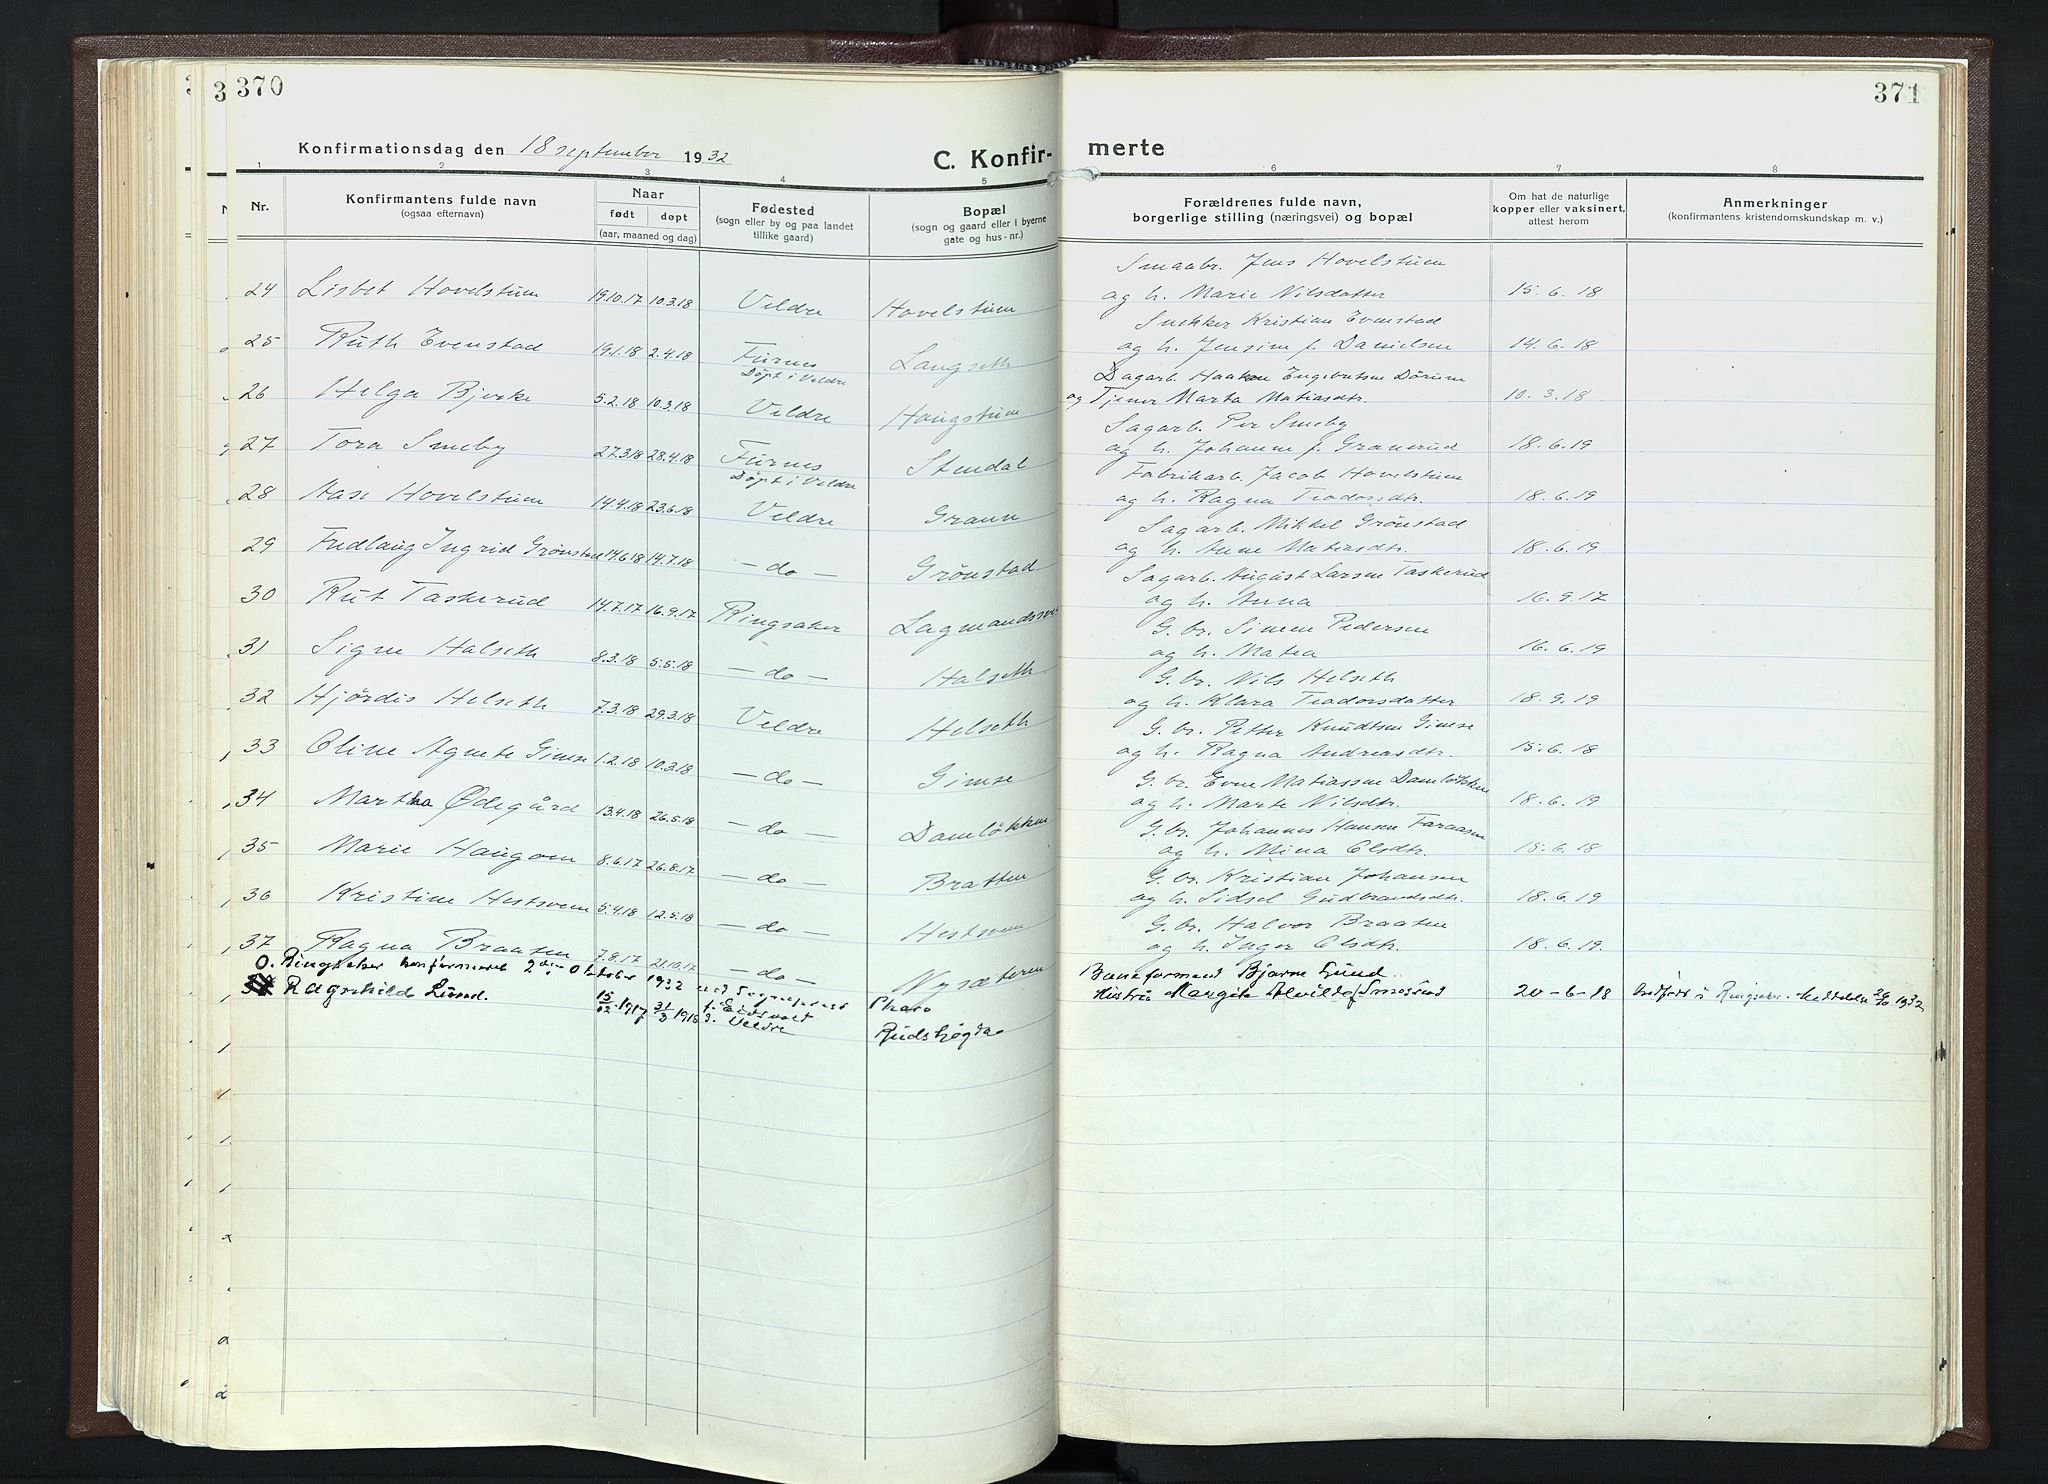 370
Konfirmationsdag den 18 september 1932
C. Konfir-
1 2 3 4 5
Nr. Konfirmantens fulde navn (ogsaa efternavn) Naar født døpt (aar, maaned og dag) Fødested (sogn eller by og paa landet tillike gaard) Bopæl (sogn og gaard eller i byerne gate og hus-nr.)
24 Lisbet Hovelstuen 19.10.17 10.3.18 Veldre Hovelstuen
25 Ruth Evenstad 19.1.18 2.4.18 Furnes Døpt i Veldre Langseth
26 Helga Bjerke 5.2.18 10.3.18 Veldre Haugstuen
27 Tora Smeby 27.3.18 28.4.18 Furnes Døpt i Veldre Stendal
28 Aase Hovelstuen 14.4.18 23.6.18 Veldre Graun
29 Fredlaug Ingrid Grønstad 14.6.18 14.7.18 — do — Grønstad
30 Rut Taskerud 14.7.17 16.9.17 Ringsaker
31 Signe Halseth 8.3.18 5.5.18 — do — Halseth
32 Hjørdis Helseth 7.3.18 29.3.18 Veldre Helseth
33 Oline Agnete Gimse 1.2.18 10.3.18 — do — Gimse
34 Martha Ødegård 13.4.18 26.5.18 — do — Damløkken
35 Marie Haugom 8.6.17 26.8.17 — do — Bratten
36 Kristine Hestsveen 5.4.18 12.5.18 — do — Hestsveen
37 Ragna Braaten 7.8.17 21.10.17 — do — Nysæteren
O. Ringsaker konfirmeret 2den Oktober 1932 ved Sogneprest
Ragnhild Lund. 15/12 1917 31/3 1918 f. Eidsvold d. Veldre Rudshøgda
371
merte
6 7 8
Forældrenes fulde navn, borgerlige stilling (næringsvei) og bopæl Om hat de naturlige kopper eller vaksinert, attest herom Anmerkninger (konfirmantens kristendomskundskap m. v.)
Smaabr. Jens Hovelstuen
og h. Marie Nilsdatter 15.6.18
Snekker Kristian Evenstad
og h. Jensine f. Danielsen 14.6.18
Dagarb. Haaken Engebretsen Dørum
og Tjener Marta Matiasdtr. 10.3.18
Sagarb. Per Smeby
og h. Johanne f. Granerud 18.6.19
Fabrikarb. Jacob Hovelstuen
og h. Ragna Teodorsdtr. 18.6.19
Sagarb. Mikkel Grønstad
og h. Anne Matiasdtr. 18.6.19
Sagarb. August Larsen Taskerud
og h. Anna 16.9.17
G. br. Simen Pedersen
og h. Matea 16.6.19
G. br. Nils Helseth
og h. Klara Teodorsdatter 18.9.19
G. br. Petter Knudtsen Gimse
og h. Ragna Andreasdtr. 15.6.18
G. br. Even Matiassen Damløkken
og h. Marte Nilsdtr. 18.6.19
G. br. Johannes Hansen Faraasen
og h. Mina Olsdtr. 15.6.18
G. br. Kristian Johansen
og h. Sidsel Gudbrandsdtr. 18.6.19
G. br. Halvor Braaten
og h. Inger Olsdtr. 18.6.19.
Baneformand Bjarne Lund.
Hustru Margit Alvilde f. 20-6-18 Indført i Ringsaker. Meddelelse 26/10 1932